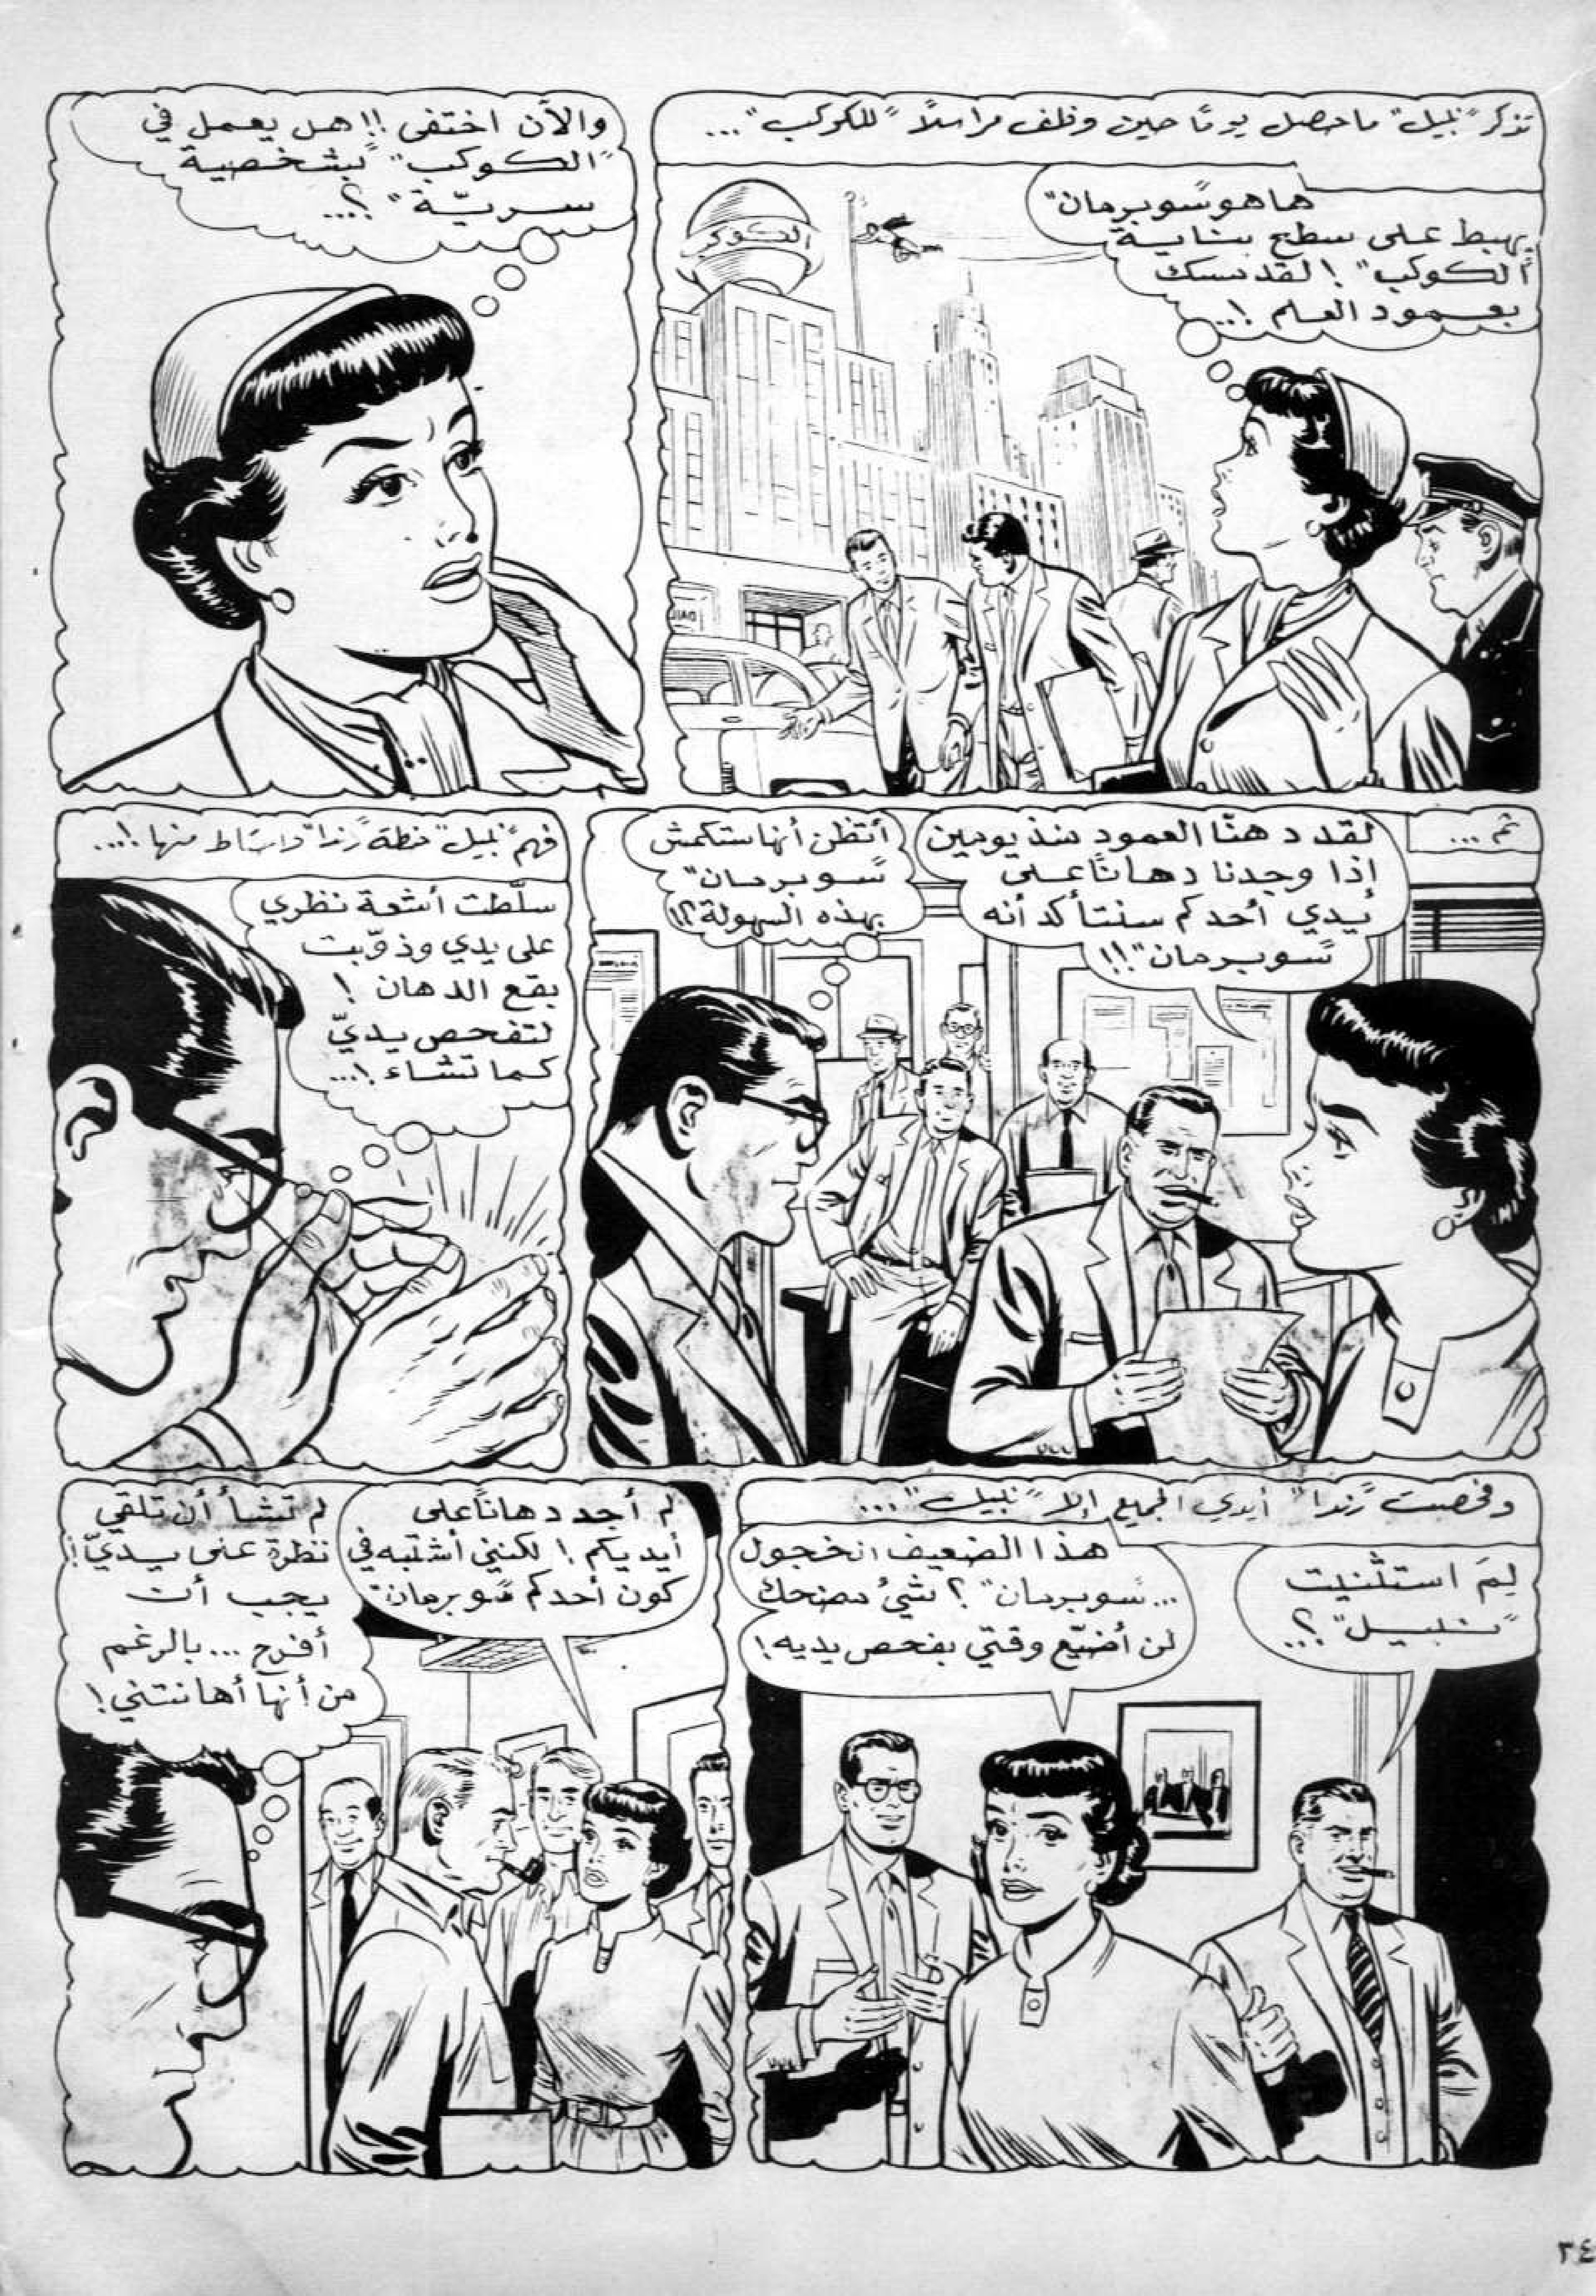 تذكر "نبيل" ما حصل يومًا حين وظف مراسلاً "للكوكب"...
ها هو "سوبرمان"
يهبط على سطح بناية
"الكوكب"! لقد مسك
بعمود العلم!..
الكوكب
DAIL
والآن اختفى!! هل يعمل في
"الكوكب" "بشخصية
سريّة"؟...
ثم...
لقد دهنّا العمود منذ يومين
إذا وجدنا دهانًا على
يدي أحدكم سنتأكد أنه
"سوبرمان"!!
أتظن أنها ستكمش
"سوبرمان"
بهذه السهولة؟!
فهم "نبيل" خطة "رندا" واستاط منها!...
سلّطت أشعة نظري
على يدي وذوّبت
بقع الدهان!
لتفحص يديّ
كما تشاء!...
وفحصت "رندا" أيدي الجميع إلا "نبيل"...
لِمَ استثنيت
"نبيل"؟..
هذا الضعيف الخجول
..."سوبرمان"؟ شيء مضحك
لن أضيّع وقتي بفحص يديه!
لم أجد دهانًا على
أيديكم! لكنني أشتبه في
كون أحدكم "سوبرمان"
لم تشأ أن تلقي
نظرة على يديّ!!
يجب أن
أفرح... بالرغم
من أنها أهانتني!
٣٤